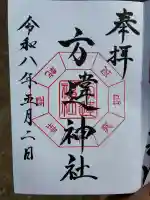 奉拝
方違神社
令和八年五月二日